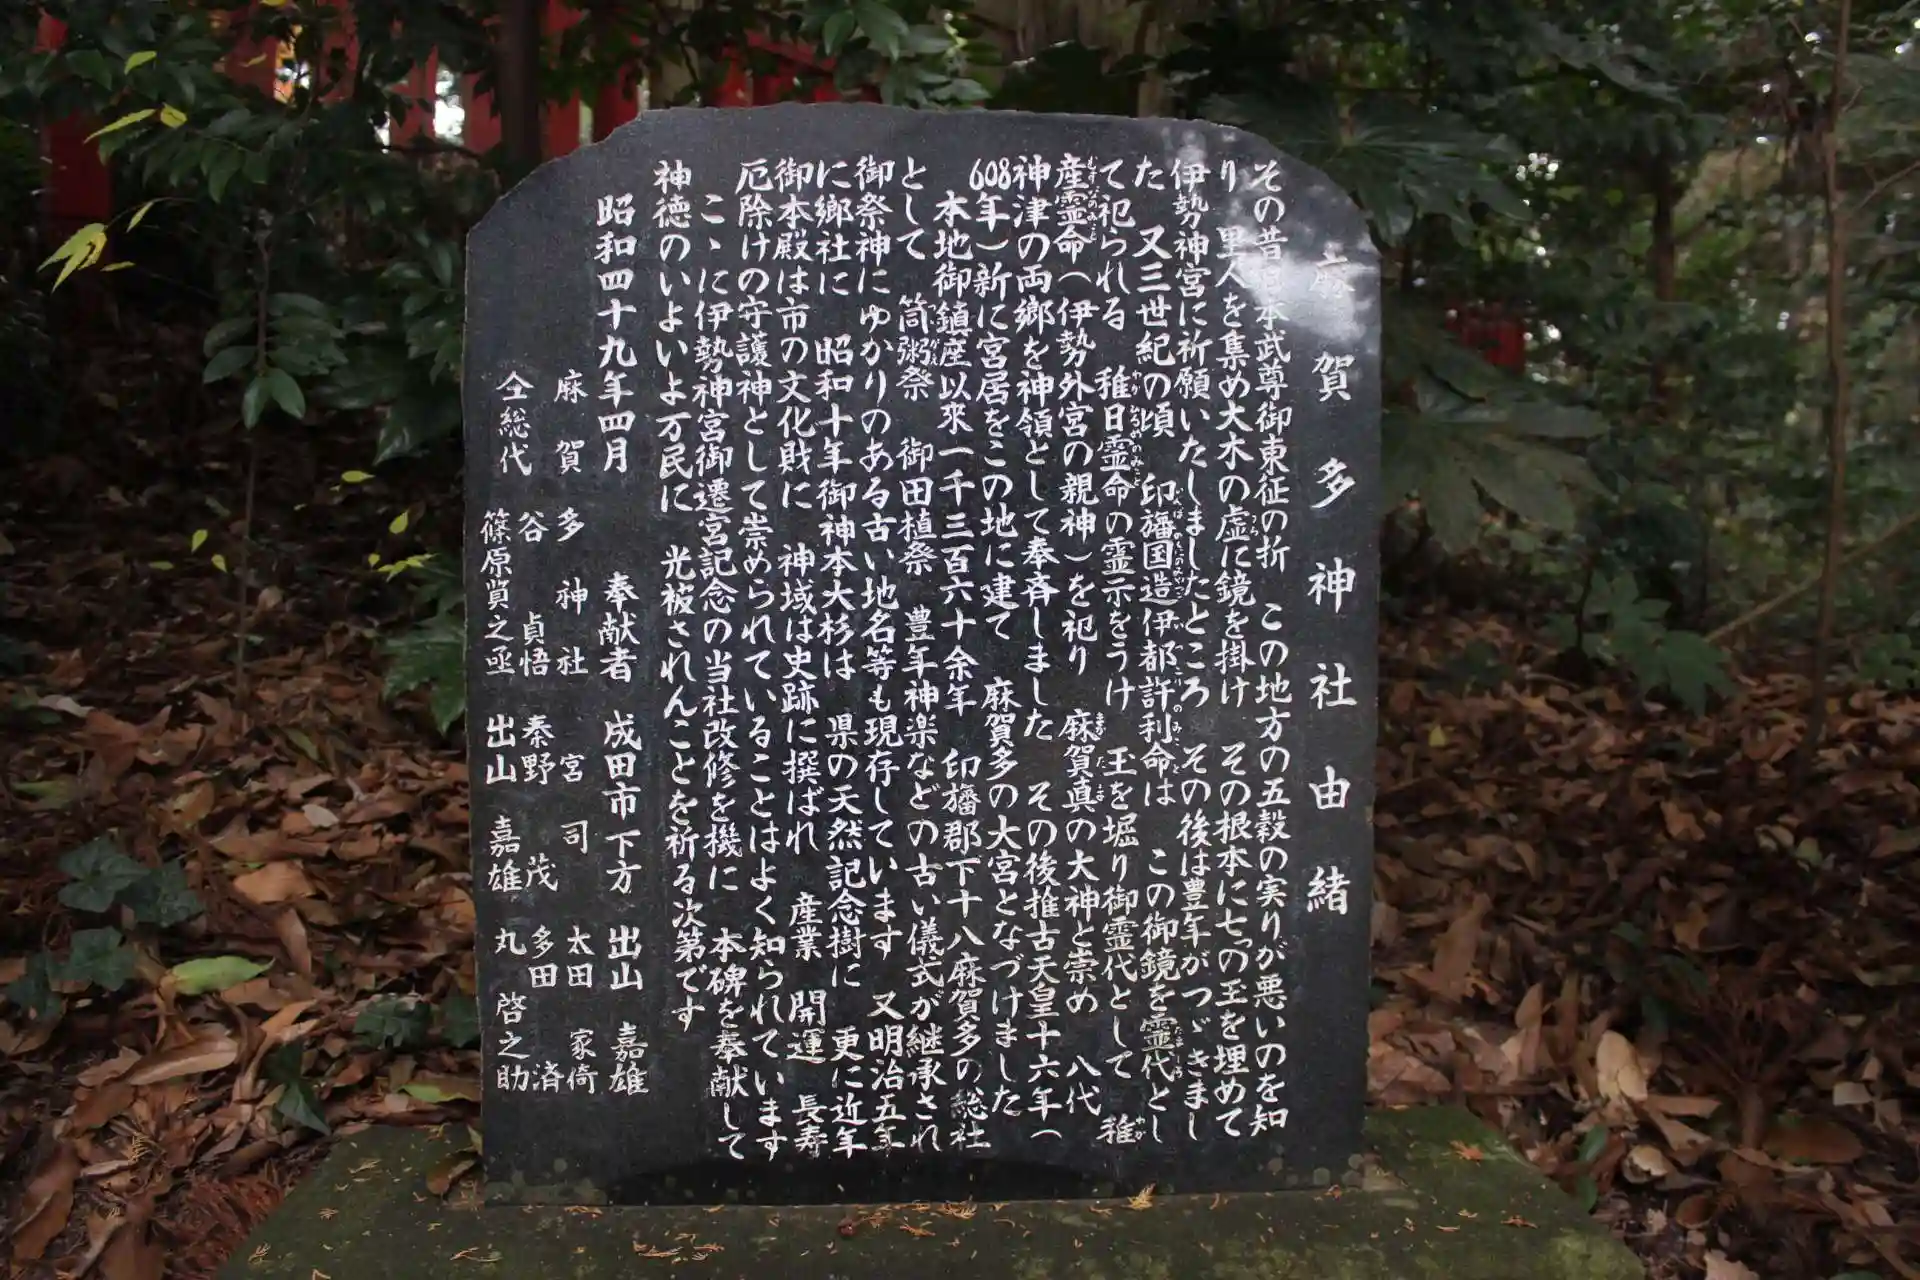 麻賀多神社由緒
その昔日本武尊御東征の折 この地方の五穀の実りが悪いのを知
り 里人を集め大木の虚に鏡を掛け その根本に七つの玉を埋めて
伊勢神宮に祈願いたしましたところ その後は豊年がつゞきまし
た 又三世紀の頃 印旛国造伊都許利命は この御鏡を霊代とし
て祀られる 稚日霊命の霊示をうけ 玉を堀り御霊代として 稚
産霊命(伊勢外宮の親神)を祀り 麻賀真の大神と崇め 八代
神津の両郷を神領として奉斉しました その後推古天皇十六年(
608年)新に宮居をこの地に建て 麻賀多の大宮となづけました
本地御鎮座以來一千三百六十余年 印旛郡下十八麻賀多の総社
として 筒粥祭 御田植祭 豊年神楽などの古い儀式が継承され
御祭神にゆかりのある古い地名等も現存しています 又明治五年
に郷社に 昭和十年御神本大杉は 県の天然記念樹に 更に近年
御本殿は市の文化財に 神域は史跡に撰ばれ 産業 開運 長寿
厄除けの守護神として崇められていることはよく知られています
こゝに伊勢神宮御遷宮記念の当社改修を機に 本碑を奉献して
神徳のいよいよ万民に 光被されんことを祈る次第です
昭和四十九年四月 奉献者 成田市下方 出山 嘉雄
麻賀多神社 宮司 太田 家倚
仝総代 谷 貞悟 秦野 茂 多田 済
篠原貿之亟 出山 嘉雄 丸 啓之助